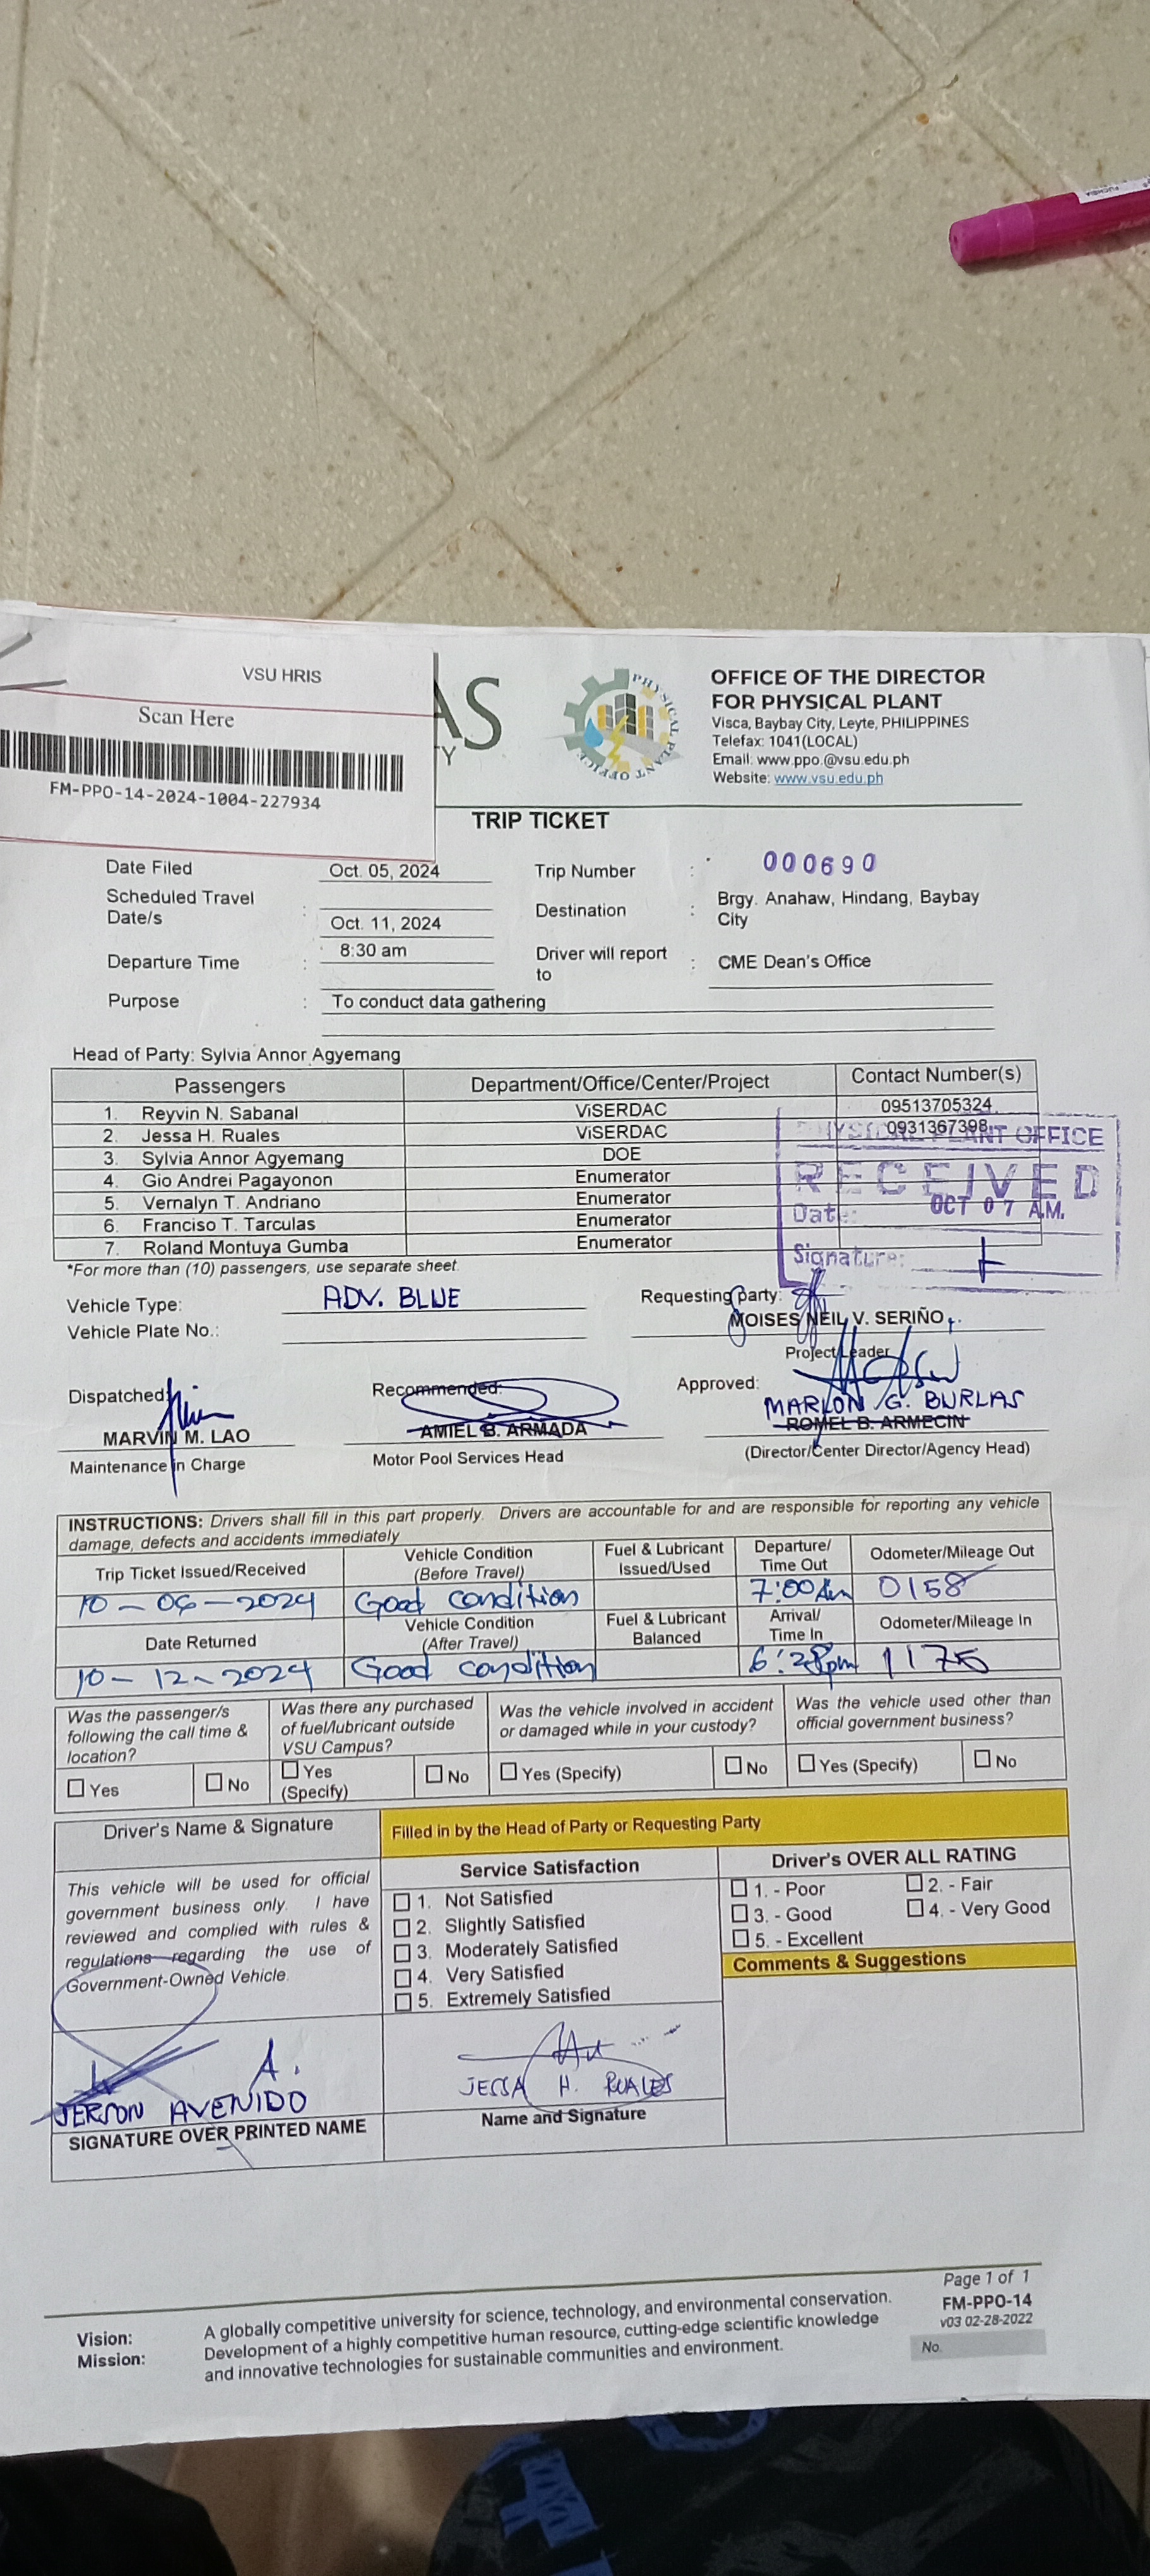 VSU HRIS
Scan Here
FM-PPO-14-2024-1004-227934
AS
TY
PHYSICAL PLANT OFFICE
OFFICE OF THE DIRECTOR
FOR PHYSICAL PLANT
Visca, Baybay City, Leyte, PHILIPPINES
Telefax: 1041(LOCAL)
Email: www.ppo.@vsu.edu.ph
Website: www.vsu.edu.ph
TRIP TICKET
Date Filed Oct. 05, 2024 Trip Number : 000690
Scheduled Travel Date/s : Oct. 11, 2024 Destination : Brgy. Anahaw, Hindang, Baybay City
Departure Time : 8:30 am Driver will report to : CME Dean's Office
Purpose : To conduct data gathering
Head of Party: Sylvia Annor Agyemang
Passengers Department/Office/Center/Project Contact Number(s)
1. Reyvin N. Sabanal ViSERDAC 09513705324
2. Jessa H. Ruales ViSERDAC 0931367398
3. Sylvia Annor Agyemang DOE
4. Gio Andrei Pagayonon Enumerator
5. Vernalyn T. Andriano Enumerator
6. Franciso T. Tarculas Enumerator
7. Roland Montuya Gumba Enumerator
PHYSICAL PLANT OFFICE
RECEIVED
Date: OCT 07 A.M.
Signature:
*For more than (10) passengers, use separate sheet.
Vehicle Type: ADV. BLUE Requesting party:
Vehicle Plate No.: MOISES NEIL V. SERIÑO
Project Leader
Dispatched: Recommended: Approved:
MARLON G. BURLAS
MARVIN M. LAO AMIEL B. ARMADA ROMEL B. ARMECIN
Maintenance in Charge Motor Pool Services Head (Director/Center Director/Agency Head)
INSTRUCTIONS: Drivers shall fill in this part properly. Drivers are accountable for and are responsible for reporting any vehicle
damage, defects and accidents immediately
Trip Ticket Issued/Received Vehicle Condition (Before Travel) Fuel & Lubricant Issued/Used Departure/ Time Out Odometer/Mileage Out
10-06-2024 Good condition 7:00 Am 0158
Date Returned Vehicle Condition (After Travel) Fuel & Lubricant Balanced Arrival/ Time In Odometer/Mileage In
10-12-2024 Good condition 6:28pm 1175
Was the passenger/s following the call time & location? Was there any purchased of fuel/lubricant outside VSU Campus? Was the vehicle involved in accident or damaged while in your custody? Was the vehicle used other than official government business?
Yes No Yes (Specify) No Yes (Specify) No Yes (Specify) No
Driver's Name & Signature Filled in by the Head of Party or Requesting Party
This vehicle will be used for official
government business only. I have
reviewed and complied with rules &
regulations regarding the use of
Government-Owned Vehicle.
Service Satisfaction
1. Not Satisfied
2. Slightly Satisfied
3. Moderately Satisfied
4. Very Satisfied
5. Extremely Satisfied
Driver's OVER ALL RATING
1. - Poor 2. - Fair
3. - Good 4. - Very Good
5. - Excellent
Comments & Suggestions
A.
JERSON AVENIDO
SIGNATURE OVER PRINTED NAME
JESSA H. RUALES
Name and Signature
Page 1 of 1
FM-PPO-14
v03 02-28-2022
No.
Vision: A globally competitive university for science, technology, and environmental conservation.
Mission: Development of a highly competitive human resource, cutting-edge scientific knowledge
and innovative technologies for sustainable communities and environment.